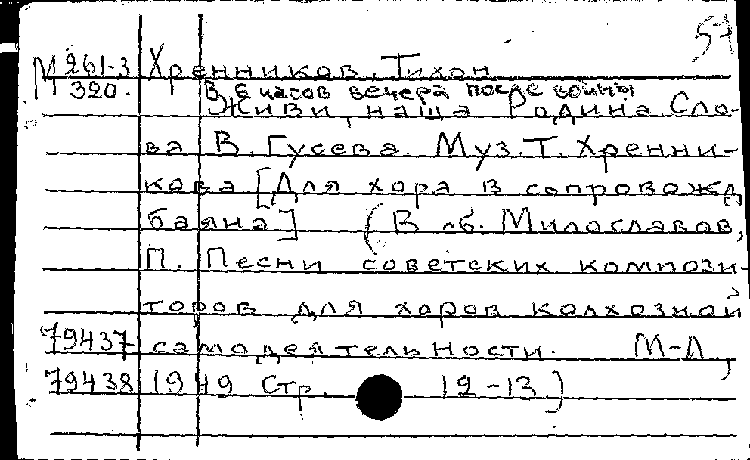 54
М 261-3 Хренников, Тихон
320. В 6 часов вечера после войны
Живи, наша Родина. Сло-
ва В. Гусева. Муз. Т. Хренни-
кова [Для хора в сопровожд.
баяна] (В сб. Милославов,
П. Песни советских компози-
торов для хоров колхозной
79437 самодеятельности. М-Л,
79438 1949 Стр. 12-13)